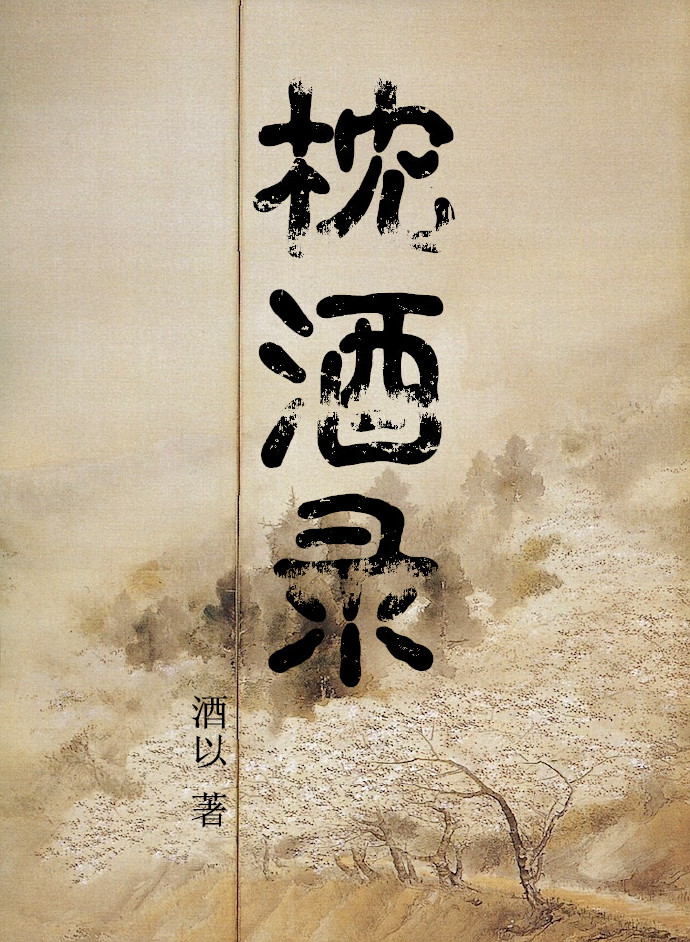 枕酒录
酒以 著